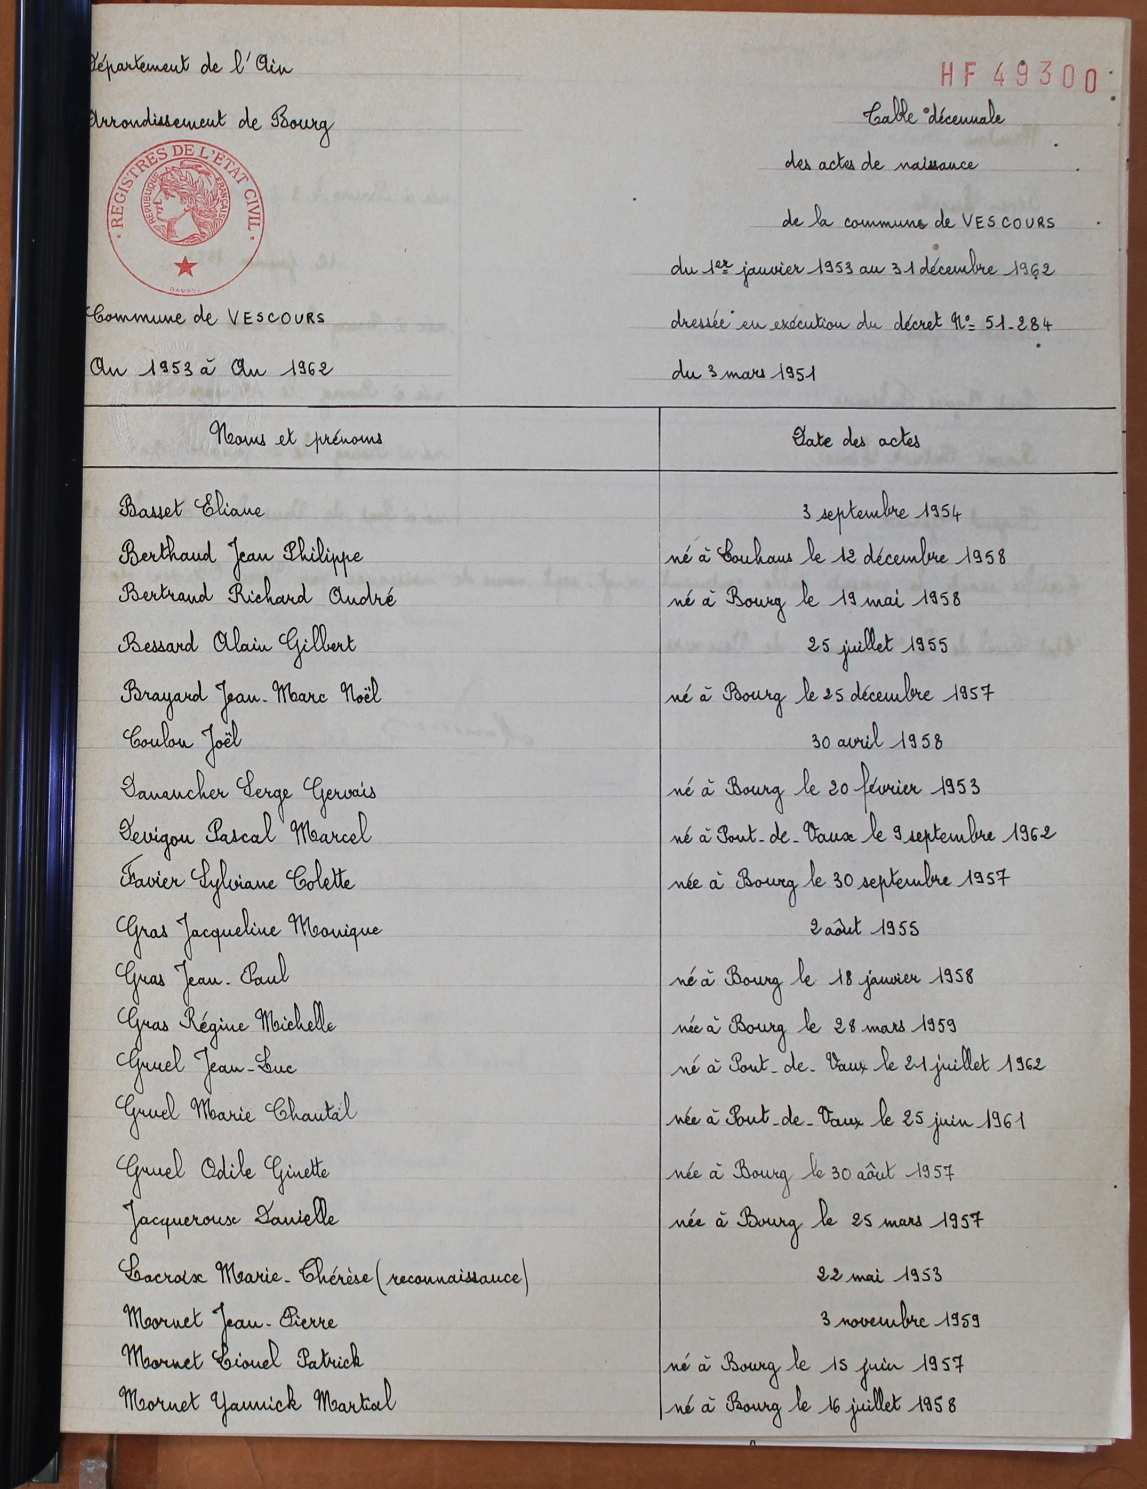 Département de l'Ain
HF 49300
Arrondissement de Bourg
Table décennale
des actes de naissance
REGISTRES DE L'ETAT CIVIL
REPUBLIQUE FRANÇAISE
de la commune de VESCOURS
du 1er janvier 1953 au 31 décembre 1962
Commune de VESCOURS
dressée en exécution du décret N° 51-284
An 1953 à An 1962
du 3 mars 1951
Noms et prénoms
Date des actes
Basset Eliane
3 septembre 1954
Berthaud Jean Philippe
né à Louhans le 12 décembre 1958
Bertrand Richard André
né à Bourg le 19 mai 1958
Bessard Alain Gilbert
25 juillet 1955
Brayard Jean-Marc Noël
né à Bourg le 25 décembre 1957
Coulon Joël
30 avril 1958
Danancher Serge Gervais
né à Bourg le 20 février 1953
Devigon Pascal Marcel
né à Pont-de-Vaux le 9 septembre 1962
Favier Sylviane Colette
née à Bourg le 30 septembre 1957
Gras Jacqueline Monique
2 aôut 1955
Gras Jean-Paul
né à Bourg le 18 janvier 1958
Gras Régine Michelle
née à Bourg le 28 mars 1959
Gruel Jean-Luc
né à Pont-de-Vaux le 21 juillet 1962
Gruel Marie Chantal
née à Pont-de-Vaux le 25 juin 1961
Gruel Odile Ginette
née à Bourg le 30 aôut 1957
Jacqueroux Danielle
née à Bourg le 25 mars 1957
Lacroix Marie-Thérèse (reconnaissance)
22 mai 1953
Mornet Jean-Pierre
3 novembre 1959
Mornet Lionel Patrick
né à Bourg le 15 juin 1957
Mornet Yannick Martial
né à Bourg le 16 juillet 1958